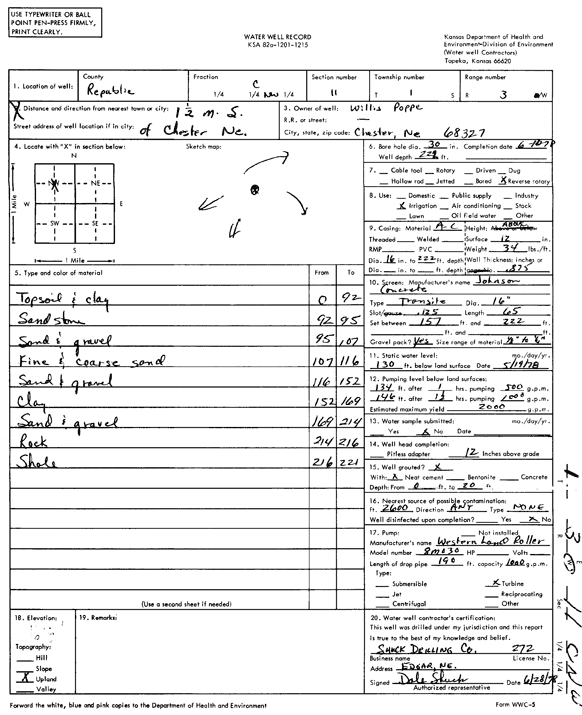 USE TYPEWRITER OR BALL
POINT PEN-PRESS FIRMLY,
PRINT CLEARLY.
WATER WELL RECORD
KSA 82a-1201-1215
Kansas Department of Health and
Environment-Division of Environment
(Water well Contractors)
Topeka, Kansas 66620
1. Location of well: County Republic Fraction 1/4 C 1/4 NW 1/4 Section number 11 Township number T 1 S Range number R 3 W
Distance and direction from nearest town or city: 1½ m. S.
Street address of well location if in city: of Chester Ne.
3. Owner of well: Willis Poppe
R.R. or street: —
City, state, zip code: Chester, Ne 68327
4. Locate with "X" in section below: Sketch map:
N
NW NE
W E
SW SE
S
1 Mile
1 Mile
6. Bore hole dia. 30 in. Completion date
Well depth 222 ft.
7. Cable tool Rotary Driven Dug
Hollow rod Jetted Bored X Reverse rotary
8. Use: Domestic Public supply Industry
X Irrigation Air conditioning Stock
Lawn Oil field water Other
9. Casing: Material A-C Height: Above
Threaded Welded Surface 12 in.
RMP PVC Weight 34 lbs./ft.
Dia. 16 in. to 222 ft. depth Wall Thickness: inches or
Dia. in. to ft. depth .875
10. Screen: Manufacturer's name Johnson
Concrete
Type Transite Dia. 16"
Slot/gauze .125 Length 65
Set between 157 ft. and 222 ft.
ft. and ft.
Gravel pack? yes Size range of material
11. Static water level: mo./day/yr.
130 ft. below land surface Date 5/19/78
12. Pumping level below land surfaces:
134 ft. after 1 hrs. pumping 500 g.p.m.
146 ft. after 12 hrs. pumping 1000 g.p.m.
Estimated maximum yield 2000 g.p.m.
13. Water sample submitted: mo./day/yr.
Yes X No Date
14. Well head completion:
Pitless adapter 12 Inches above grade
15. Well grouted? X
With: X Neat cement Bentonite Concrete
Depth: From 0 ft. to 20 ft.
16. Nearest source of possible contamination:
ft. 2600 Direction ANY Type NONE
Well disinfected upon completion? Yes X No
17. Pump: Not installed
Manufacturer's name Western Land Roller
Model number 8M030 HP Volts
Length of drop pipe 190 ft. capacity 1000 g.p.m.
Type:
Submersible X Turbine
Jet Reciprocating
Centrifugal Other
5. Type and color of material From To
Topsoil & clay 0 92
Sandstone 92 95
Sand & gravel 95 107
Fine & coarse sand 107 116
Sand & gravel 116 152
Clay 152 169
Sand & gravel 169 214
Rock 214 216
Shale 216 221
(Use a second sheet if needed)
18. Elevation:
Topography:
Hill
Slope
X Upland
Valley
19. Remarks:
20. Water well contractor's certification:
This well was drilled under my jurisdiction and this report
is true to the best of my knowledge and belief.
SHUCK DRILLING CO. 272
Business name License No.
Address EDGAR, NE.
Signed Dale Shuck Date 6/28/78
Authorized representative
Forward the white, blue and pink copies to the Department of Health and Environment
Form WWC-5